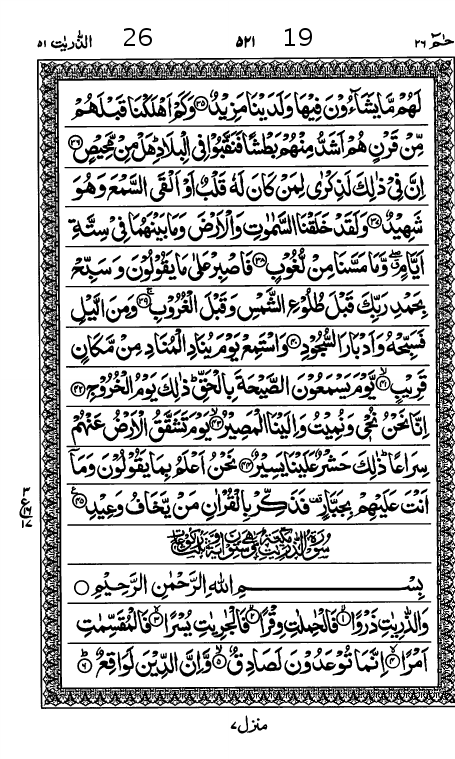 الذريت ٥١ 26 ٥٢١ 19 حٰمٓ ٢٦
لَهُمْ مَّا يَشَآءُوْنَ فِيْهَا وَلَدَيْنَا مَزِيْدٌ ﴿٣٥﴾ وَكَمْ اَهْلَكْنَا قَبْلَهُمْ
مِّنْ قَرْنٍ هُمْ اَشَدُّ مِنْهُمْ بَطْشًا فَنَقَّبُوْا فِى الْبِلَادِ ؕ هَلْ مِنْ مَّحِيْصٍ ﴿٣٦﴾
اِنَّ فِىْ ذٰلِكَ لَذِكْرٰى لِمَنْ كَانَ لَهٗ قَلْبٌ اَوْ اَلْقَى السَّمْعَ وَهُوَ
شَهِيْدٌ ﴿٣٧﴾ وَلَقَدْ خَلَقْنَا السَّمٰوٰتِ وَالْاَرْضَ وَمَا بَيْنَهُمَا فِىْ سِتَّةِ
اَيَّامٍ ۖ وَّمَا مَسَّنَا مِنْ لُّغُوْبٍ ﴿٣٨﴾ فَاصْبِرْ عَلٰى مَا يَقُوْلُوْنَ وَسَبِّحْ
بِحَمْدِ رَبِّكَ قَبْلَ طُلُوْعِ الشَّمْسِ وَقَبْلَ الْغُرُوْبِ ﴿٣٩﴾ وَمِنَ الَّيْلِ
فَسَبِّحْهُ وَاَدْبَارَ السُّجُوْدِ ﴿٤٠﴾ وَاسْتَمِعْ يَوْمَ يُنَادِ الْمُنَادِ مِنْ مَّكَانٍ
قَرِيْبٍ ﴿٤١﴾ يَّوْمَ يَسْمَعُوْنَ الصَّيْحَةَ بِالْحَقِّ ؕ ذٰلِكَ يَوْمُ الْخُرُوْجِ ﴿٤٢﴾
اِنَّا نَحْنُ نُحْىٖ وَنُمِيْتُ وَاِلَيْنَا الْمَصِيْرُ ﴿٤٣﴾ يَوْمَ تَشَقَّقُ الْاَرْضُ عَنْهُمْ
سِرَاعًا ؕ ذٰلِكَ حَشْرٌ عَلَيْنَا يَسِيْرٌ ﴿٤٤﴾ نَحْنُ اَعْلَمُ بِمَا يَقُوْلُوْنَ وَمَا
اَنْتَ عَلَيْهِمْ بِجَبَّارٍ فَذَكِّرْ بِالْقُرْاٰنِ مَنْ يَّخَافُ وَعِيْدِ ﴿٤٥﴾
٣
ع
١٦
١٧
سُوْرَةُ الذّٰرِيٰتِ مَكِّيَّةٌ
بِسْمِ اللّٰهِ الرَّحْمٰنِ الرَّحِيْمِ
وَالذّٰرِيٰتِ ذَرْوًا ﴿١﴾ فَالْحٰمِلٰتِ وِقْرًا ﴿٢﴾ فَالْجٰرِيٰتِ يُسْرًا ﴿٣﴾ فَالْمُقَسِّمٰتِ
اَمْرًا ﴿٤﴾ اِنَّمَا تُوْعَدُوْنَ لَصَادِقٌ ﴿٥﴾ وَّاِنَّ الدِّيْنَ لَوَاقِعٌ ﴿٦﴾
منزل ٧